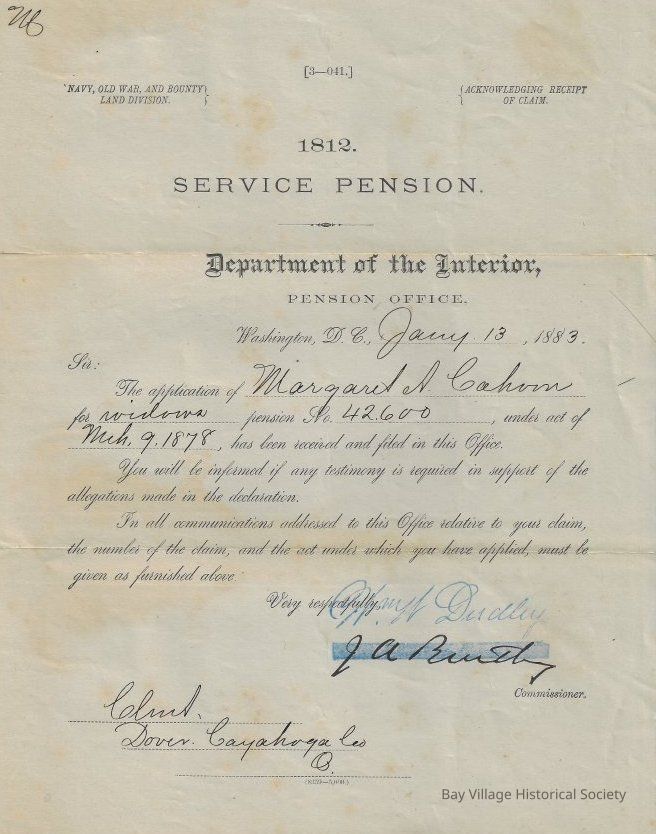 [3—041.]
NAVY, OLD WAR, AND BOUNTY
LAND DIVISION.
ACKNOWLEDGING RECEIPT
OF CLAIM.
1812.
SERVICE PENSION.
Department of the Interior,
PENSION OFFICE.
Washington, D. C., Jany. 13, 1883.
Sir:
The application of Margaret A Cahoon
for widows pension No. 42.600, under act of
Mch. 9. 1878, has been received and filed in this Office.
You will be informed if any testimony is required in support of the
allegations made in the declaration.
In all communications addressed to this Office relative to your claim,
the number of the claim, and the act under which you have applied, must be
given as furnished above.
Very respectfully,
Dudley
J A
Commissioner.
Clmt.
Dover. Cayahoga Co
O.
Bay Village Historical Society